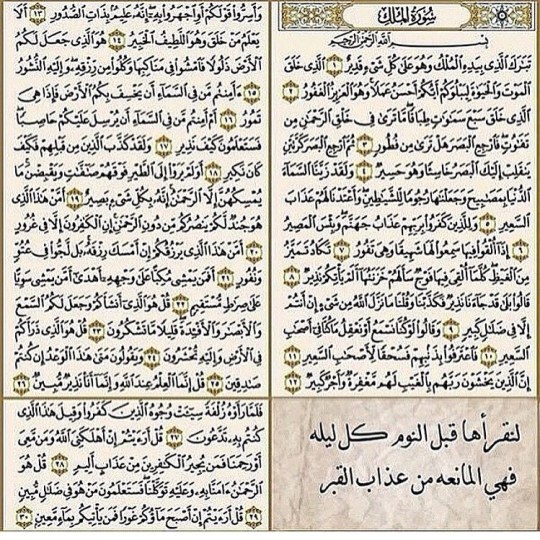 سورة الملك
بسم الله الرحمن الرحيم
تَبَٰرَكَ ٱلَّذِي بِيَدِهِ ٱلْمُلْكُ وَهُوَ عَلَىٰ كُلِّ شَيْءٍ قَدِيرٌ ١ ٱلَّذِي خَلَقَ
ٱلْمَوْتَ وَٱلْحَيَوٰةَ لِيَبْلُوَكُمْ أَيُّكُمْ أَحْسَنُ عَمَلًا وَهُوَ ٱلْعَزِيزُ ٱلْغَفُورُ ٢
ٱلَّذِي خَلَقَ سَبْعَ سَمَٰوَٰتٍ طِبَاقًا مَّا تَرَىٰ فِي خَلْقِ ٱلرَّحْمَٰنِ مِن
تَفَٰوُتٍ فَٱرْجِعِ ٱلْبَصَرَ هَلْ تَرَىٰ مِن فُطُورٍ ٣ ثُمَّ ٱرْجِعِ ٱلْبَصَرَ كَرَّتَيْنِ
يَنقَلِبْ إِلَيْكَ ٱلْبَصَرُ خَاسِئًا وَهُوَ حَسِيرٌ ٤ وَلَقَدْ زَيَّنَّا ٱلسَّمَآءَ
ٱلدُّنْيَا بِمَصَٰبِيحَ وَجَعَلْنَٰهَا رُجُومًا لِّلشَّيَٰطِينِ وَأَعْتَدْنَا لَهُمْ عَذَابَ
ٱلسَّعِيرِ ٥ وَلِلَّذِينَ كَفَرُوا۟ بِرَبِّهِمْ عَذَابُ جَهَنَّمَ وَبِئْسَ ٱلْمَصِيرُ
٦ إِذَآ أُلْقُوا۟ فِيهَا سَمِعُوا۟ لَهَا شَهِيقًا وَهِيَ تَفُورُ ٧ تَكَادُ تَمَيَّزُ
مِنَ ٱلْغَيْظِ كُلَّمَآ أُلْقِيَ فِيهَا فَوْجٌ سَأَلَهُمْ خَزَنَتُهَآ أَلَمْ يَأْتِكُمْ نَذِيرٌ ٨
قَالُوا۟ بَلَىٰ قَدْ جَآءَنَا نَذِيرٌ فَكَذَّبْنَا وَقُلْنَا مَا نَزَّلَ ٱللَّهُ مِن شَيْءٍ إِنْ أَنتُمْ
إِلَّا فِي ضَلَٰلٍ كَبِيرٍ ٩ وَقَالُوا۟ لَوْ كُنَّا نَسْمَعُ أَوْ نَعْقِلُ مَا كُنَّا فِيٓ أَصْحَٰبِ
ٱلسَّعِيرِ ١٠ فَٱعْتَرَفُوا۟ بِذَنۢبِهِمْ فَسُحْقًا لِّأَصْحَٰبِ ٱلسَّعِيرِ ١١
إِنَّ ٱلَّذِينَ يَخْشَوْنَ رَبَّهُم بِٱلْغَيْبِ لَهُم مَّغْفِرَةٌ وَأَجْرٌ كَبِيرٌ ١٢
وَأَسِرُّوا۟ قَوْلَكُمْ أَوِ ٱجْهَرُوا۟ بِهِۦٓ إِنَّهُۥ عَلِيمٌۢ بِذَاتِ ٱلصُّدُورِ ١٣ أَلَا
يَعْلَمُ مَنْ خَلَقَ وَهُوَ ٱللَّطِيفُ ٱلْخَبِيرُ ١٤ هُوَ ٱلَّذِي جَعَلَ لَكُمُ
ٱلْأَرْضَ ذَلُولًا فَٱمْشُوا۟ فِي مَنَاكِبِهَا وَكُلُوا۟ مِن رِّزْقِهِۦ وَإِلَيْهِ ٱلنُّشُورُ
١٥ ءَأَمِنتُم مَّن فِي ٱلسَّمَآءِ أَن يَخْسِفَ بِكُمُ ٱلْأَرْضَ فَإِذَا هِيَ
تَمُورُ ١٦ أَمْ أَمِنتُم مَّن فِي ٱلسَّمَآءِ أَن يُرْسِلَ عَلَيْكُمْ حَاصِبًا
فَسَتَعْلَمُونَ كَيْفَ نَذِيرِ ١٧ وَلَقَدْ كَذَّبَ ٱلَّذِينَ مِن قَبْلِهِمْ فَكَيْفَ
كَانَ نَكِيرِ ١٨ أَوَلَمْ يَرَوْا۟ إِلَى ٱلطَّيْرِ فَوْقَهُمْ صَٰٓفَّٰتٍ وَيَقْبِضْنَ مَا
يُمْسِكُهُنَّ إِلَّا ٱلرَّحْمَٰنُ إِنَّهُۥ بِكُلِّ شَيْءٍۭ بَصِيرٌ ١٩ أَمَّنْ هَٰذَا ٱلَّذِي
هُوَ جُندٌ لَّكُمْ يَنصُرُكُم مِّن دُونِ ٱلرَّحْمَٰنِ إِنِ ٱلْكَٰفِرُونَ إِلَّا فِي غُرُورٍ
٢٠ أَمَّنْ هَٰذَا ٱلَّذِي يَرْزُقُكُمْ إِنْ أَمْسَكَ رِزْقَهُۥ بَل لَّجُّوا۟ فِي عُتُوٍّ
وَنُفُورٍ ٢١ أَفَمَن يَمْشِي مُكِبًّا عَلَىٰ وَجْهِهِۦٓ أَهْدَىٰٓ أَمَّن يَمْشِي سَوِيًّا
عَلَىٰ صِرَٰطٍ مُّسْتَقِيمٍ ٢٢ قُلْ هُوَ ٱلَّذِيٓ أَنشَأَكُمْ وَجَعَلَ لَكُمُ ٱلسَّمْعَ
وَٱلْأَبْصَٰرَ وَٱلْأَفْـِٔدَةَ قَلِيلًا مَّا تَشْكُرُونَ ٢٣ قُلْ هُوَ ٱلَّذِي ذَرَأَكُمْ
فِي ٱلْأَرْضِ وَإِلَيْهِ تُحْشَرُونَ ٢٤ وَيَقُولُونَ مَتَىٰ هَٰذَا ٱلْوَعْدُ إِن كُنتُمْ
صَٰدِقِينَ ٢٥ قُلْ إِنَّمَا ٱلْعِلْمُ عِندَ ٱللَّهِ وَإِنَّمَآ أَنَا۠ نَذِيرٌ مُّبِينٌ ٢٦
فَلَمَّا رَأَوْهُ زُلْفَةً سِيٓـَٔتْ وُجُوهُ ٱلَّذِينَ كَفَرُوا۟ وَقِيلَ هَٰذَا ٱلَّذِي
كُنتُم بِهِۦ تَدَّعُونَ ٢٧ قُلْ أَرَءَيْتُمْ إِنْ أَهْلَكَنِيَ ٱللَّهُ وَمَن مَّعِيَ
أَوْ رَحِمَنَا فَمَن يُجِيرُ ٱلْكَٰفِرِينَ مِنْ عَذَابٍ أَلِيمٍ ٢٨ قُلْ هُوَ
ٱلرَّحْمَٰنُ ءَامَنَّا بِهِۦ وَعَلَيْهِ تَوَكَّلْنَا فَسَتَعْلَمُونَ مَنْ هُوَ فِي ضَلَٰلٍ مُّبِينٍ
٢٩ قُلْ أَرَءَيْتُمْ إِنْ أَصْبَحَ مَآؤُكُمْ غَوْرًا فَمَن يَأْتِيكُم بِمَآءٍ مَّعِينٍۭ ٣٠
لنقرأها قبل النوم كل ليله
فهي المانعه من عذاب القبر